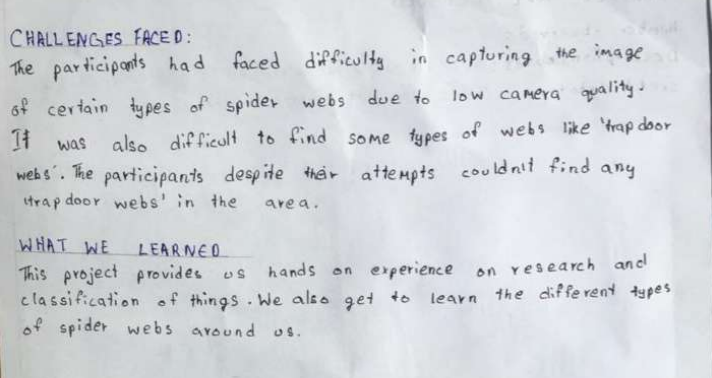 CHALLENGES FACED:
The participants had faced difficulty in capturing the image
of certain types of spider webs due to low camera quality.
It was also difficult to find some types of webs like 'trap door
webs'. The participants despite their attempts couldn't find any
'trap door webs' in the area.
WHAT WE LEARNED
This project provides us hands on experience on research and
classification of things. We also get to learn the different types
of spider webs around us.